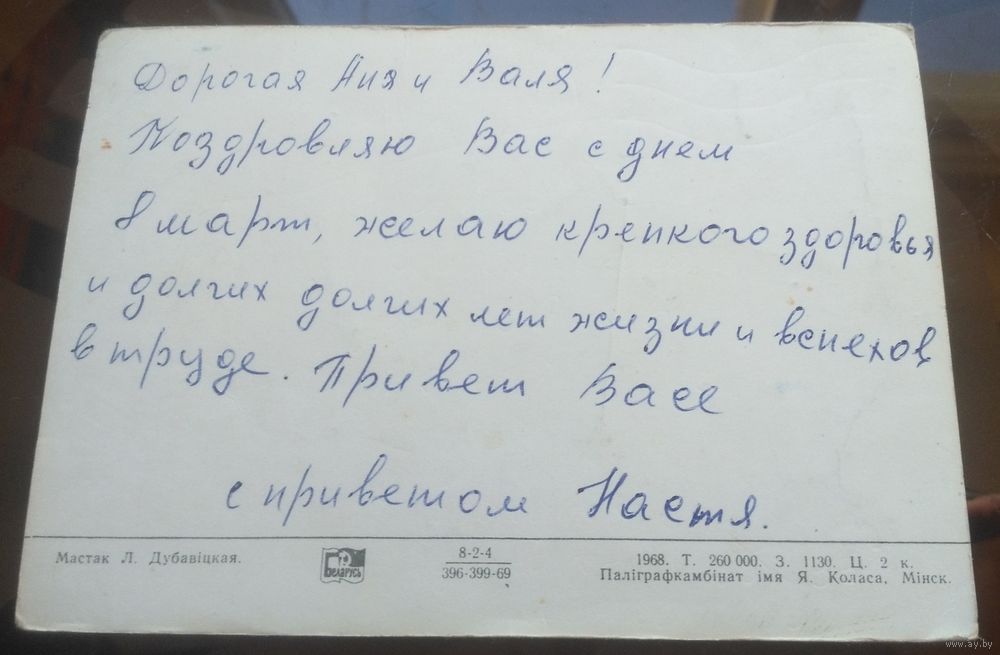 Дорогая Аня и Валя!
Поздровляю Вас с днем
8 март, желаю крепкого здоровья
и долгих долгих лет жизни и вспехов
в труде. Привет Васе
с приветом Настя.
Мастак Л. Дубавіцкая.
Беларусь
8-2-4
396-399-69
1968. Т. 260 000. З. 1130. Ц. 2 к.
Паліграфкамбінат імя Я. Коласа, Мінск.
www.ay.by